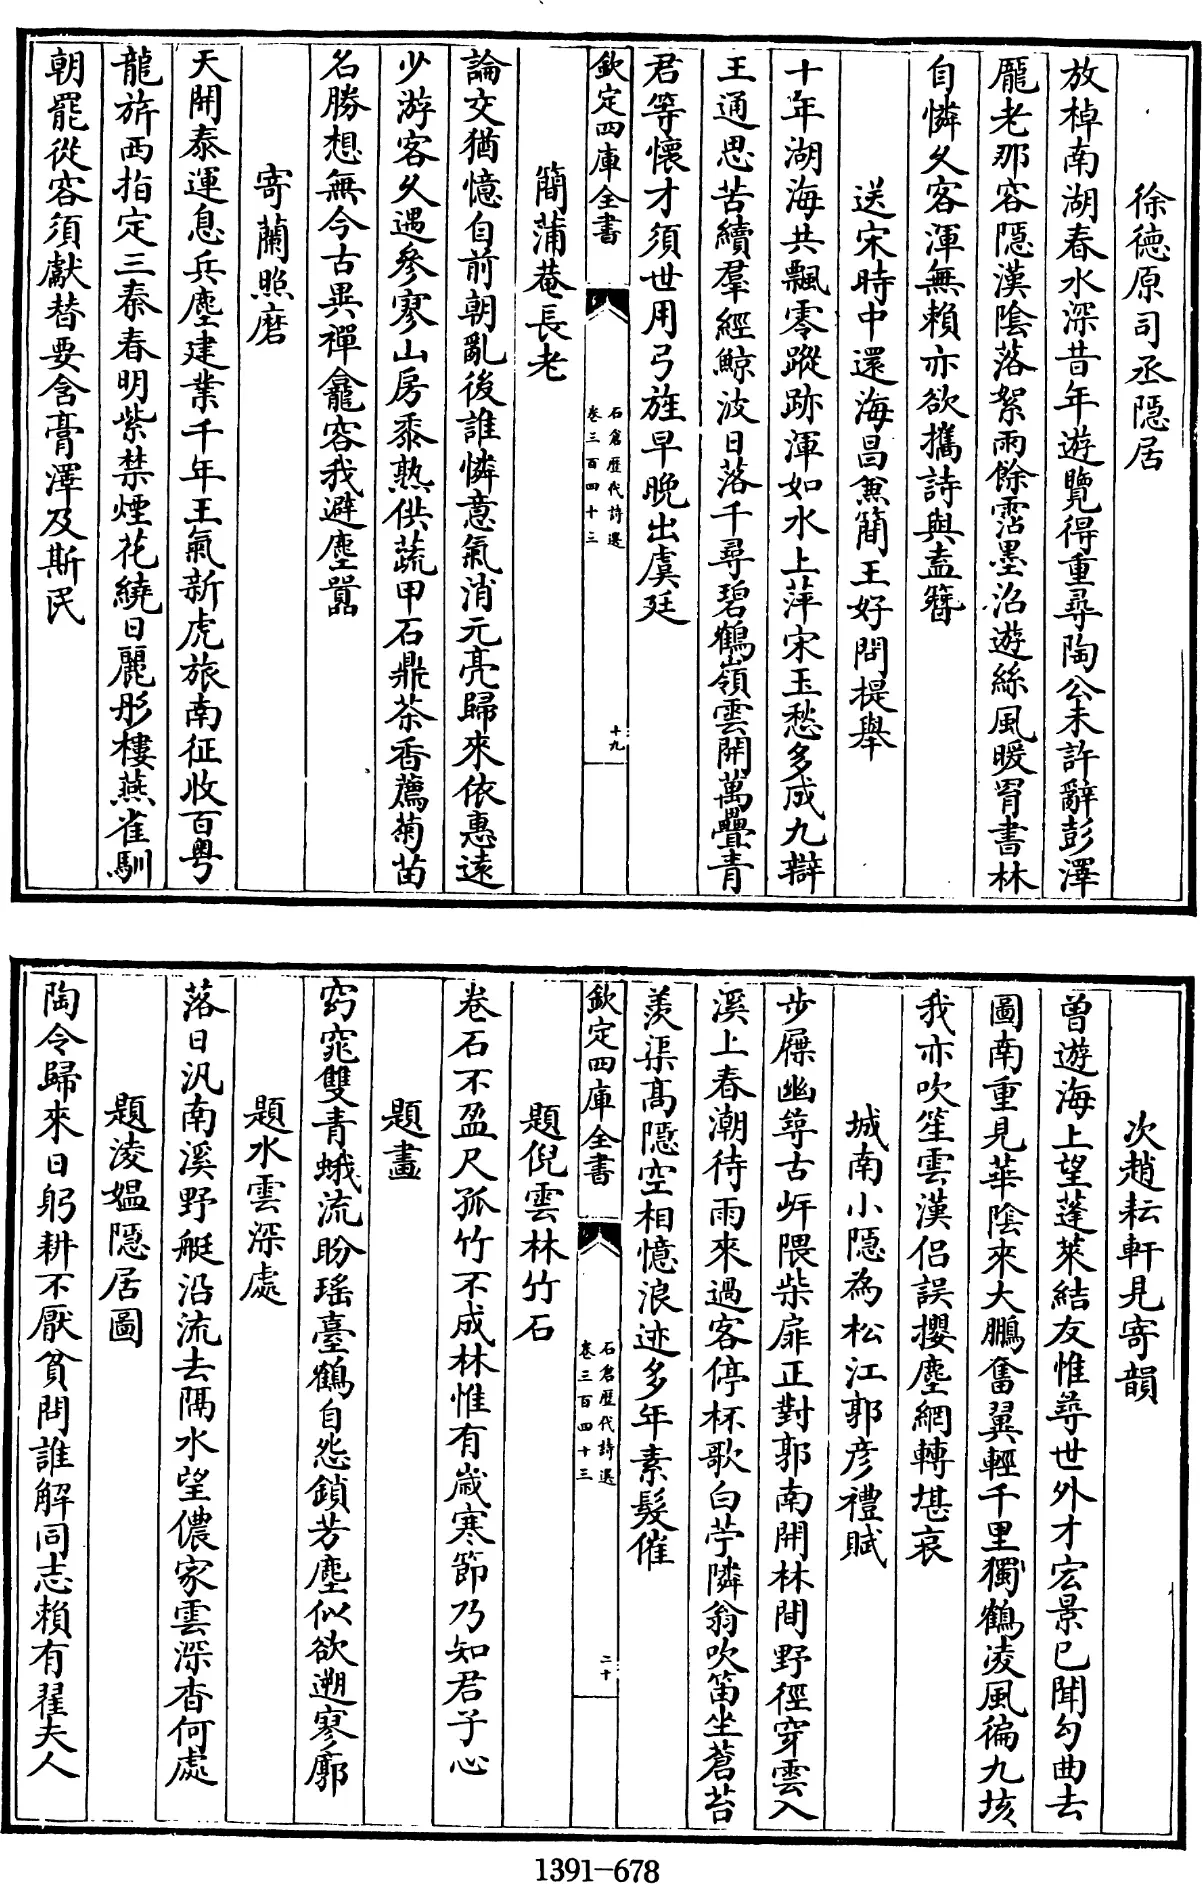 徐德原司丞隱居
放棹南湖春水深昔年遊覽得重尋陶公未許辭彭澤
龐老那容隱漢陰落絮雨餘霑墨沼遊絲風暖罥書林
自憐久客渾無賴亦欲攜詩與盍簪
送宋時中還海昌兼簡王好問提舉
十年湖海共飄零蹤跡渾如水上萍宋玉愁多成九辯
王通思苦續羣經鯨波日落千尋碧鶴嶺雲開萬疊青
君等懷才須世用弓旌早晚出虞廷
欽定四庫全書
石倉歷代詩選
卷三百四十三
十九
簡蒲菴長老
論交猶憶自前朝亂後誰憐意氣消元亮歸來依惠遠
少游客久遇參寥山房黍熟供蔬甲石鼎茶香薦菊苗
名勝想無今古異禪龕容我避塵囂
寄蘭照磨
天開泰運息兵塵建業千年王氣新虎旅南征收百粵
龍旂西指定三秦春明紫禁煙花繞日麗彤樓燕雀馴
朝罷從容須獻替要含膏澤及斯民
次趙耘軒見寄韻
曾遊海上望蓬萊結友惟尋世外才宏景已聞勾曲去
圖南重見華陰來大鵬奮翼輕千里獨鶴凌風徧九垓
我亦吹笙雲漢侶誤攖塵網轉堪哀
城南小隱為松江郭彥禮賦
步屧幽尋古岸隈柴扉正對郭南開林間野徑穿雲入
溪上春潮待雨來過客停杯歌白苧隣翁吹笛坐蒼苔
羨渠高隱空相憶浪迹多年素髮催
欽定四庫全書
石倉歷代詩選
卷三百四十三
二十
題倪雲林竹石
卷石不盈尺孤竹不成林惟有歲寒節乃知君子心
題畫
窈窕雙青蛾流盼瑤臺鶴自怨鎖芳塵似欲遡寥廓
題水雲深處
落日汎南溪野艇沿流去隔水望儂家雲深杳何處
題淩媼隱居圖
陶令歸來日躬耕不厭貧問誰解同志賴有翟夫人
1391-678